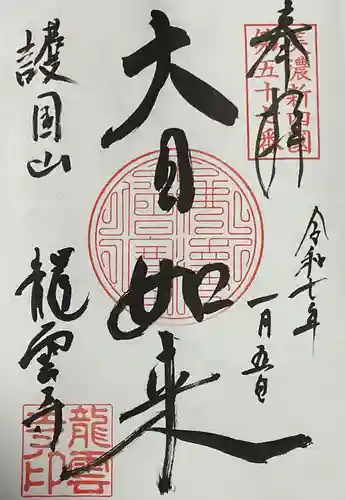 奉拝
美濃新四国
第五十七番
令和七年
一月五日
大日如来
護国山
龍雲寺
龍雲
寺印